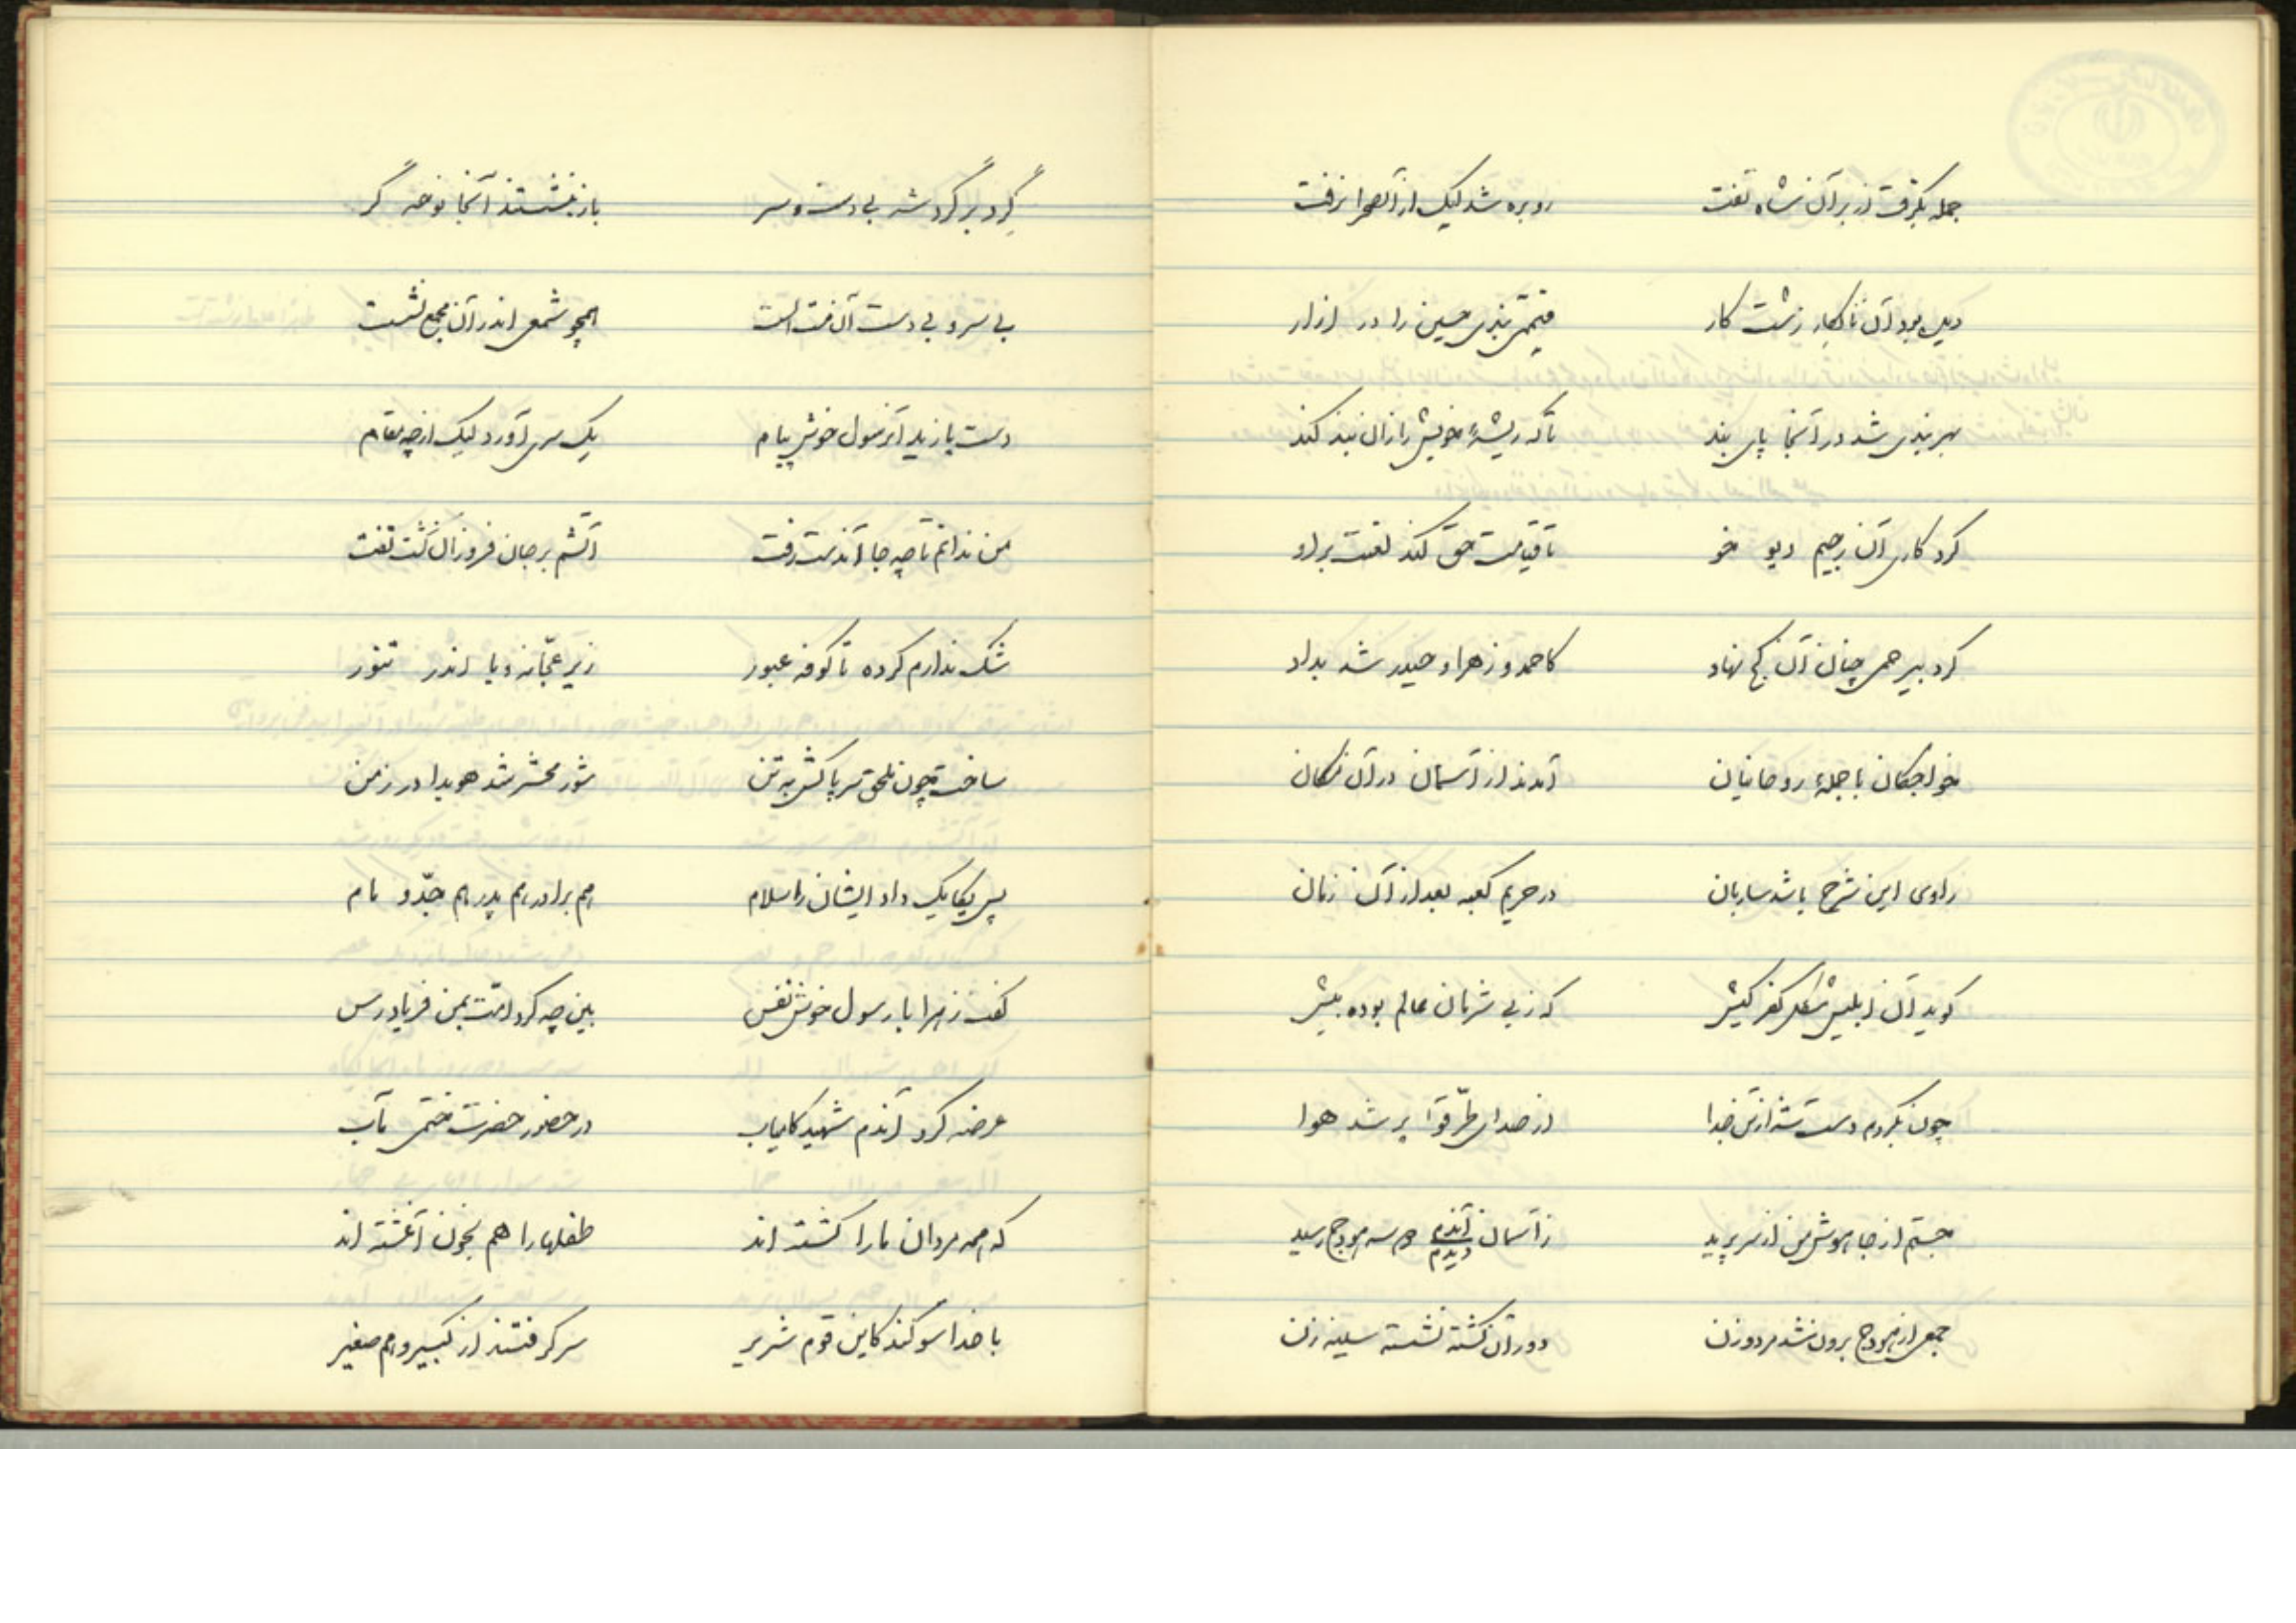 جمله بگرفت از بر آن شاه تفت روبره شد لیک از آنصحرا نرفت
دیده بود آن نابکار زشت کار قیمتی بندی حسین را در ازار
بهر بندی شد در آنجا پای بند تا که ریشهٔ خویش را زان بند کند
کرد کاری آن رجیم دیو خو تا قیامت حق کند لعنت بر او
کرد بیرحمی چنان آن کج نهاد کاحمد و زهرا و حیدر شد بداد
خواجگان با جملهٔ روحانیان آمدند از آسمان در آن مکان
راوی این شرح باشد ساربان در حریم کعبه بعد از آن زمان
گوید آن ابلیس شکل کفر کیش که ز بی شرمان عالم بوده بیش
چون بکردم دست شه از تن جدا از صدای طرّقوا پر شد هوا
جستم از جا هوش من از سر پرید ز آسمان آندم دیدم سه هودج رسید
جمعی از هودج برون شد مرد و زن دور آن کشته نشسته سینه زن
گِرد بر گرد شه بی دست و سر باز بنشستند آنجا نوحه گر
بی سر و بی دست آن همچو شمعی اندر آن مجمع نشست
دست یازید آنرسول خوش پیام یک سری آورد لیک از چه مقام
من ندانم تا چه جا آندست رفت آتشم بر جان فروزان گشت تفت
شک ندارم کرده تا کوفه عبور زیر عجّانه و یا اندر تنور
ساخت چون ملحق سر پاکش به تن شور محشر شد هویدا در زمن
پس یکایک داد ایشان را سلام هم برادر هم پدر هم جدّ و مام
گفت زهرا با رسول خوش نفس بین چه کرد امّت بمن فریادرس
عرضه کرد آندم شهید کامیاب در حضور حضرت ختمی مآب
که همه مردان ما را کشته اند طفلها را هم بخون آغشته اند
با خدا سوگند کاین قوم شریر سر گرفتند از کبیر و هم صغیر